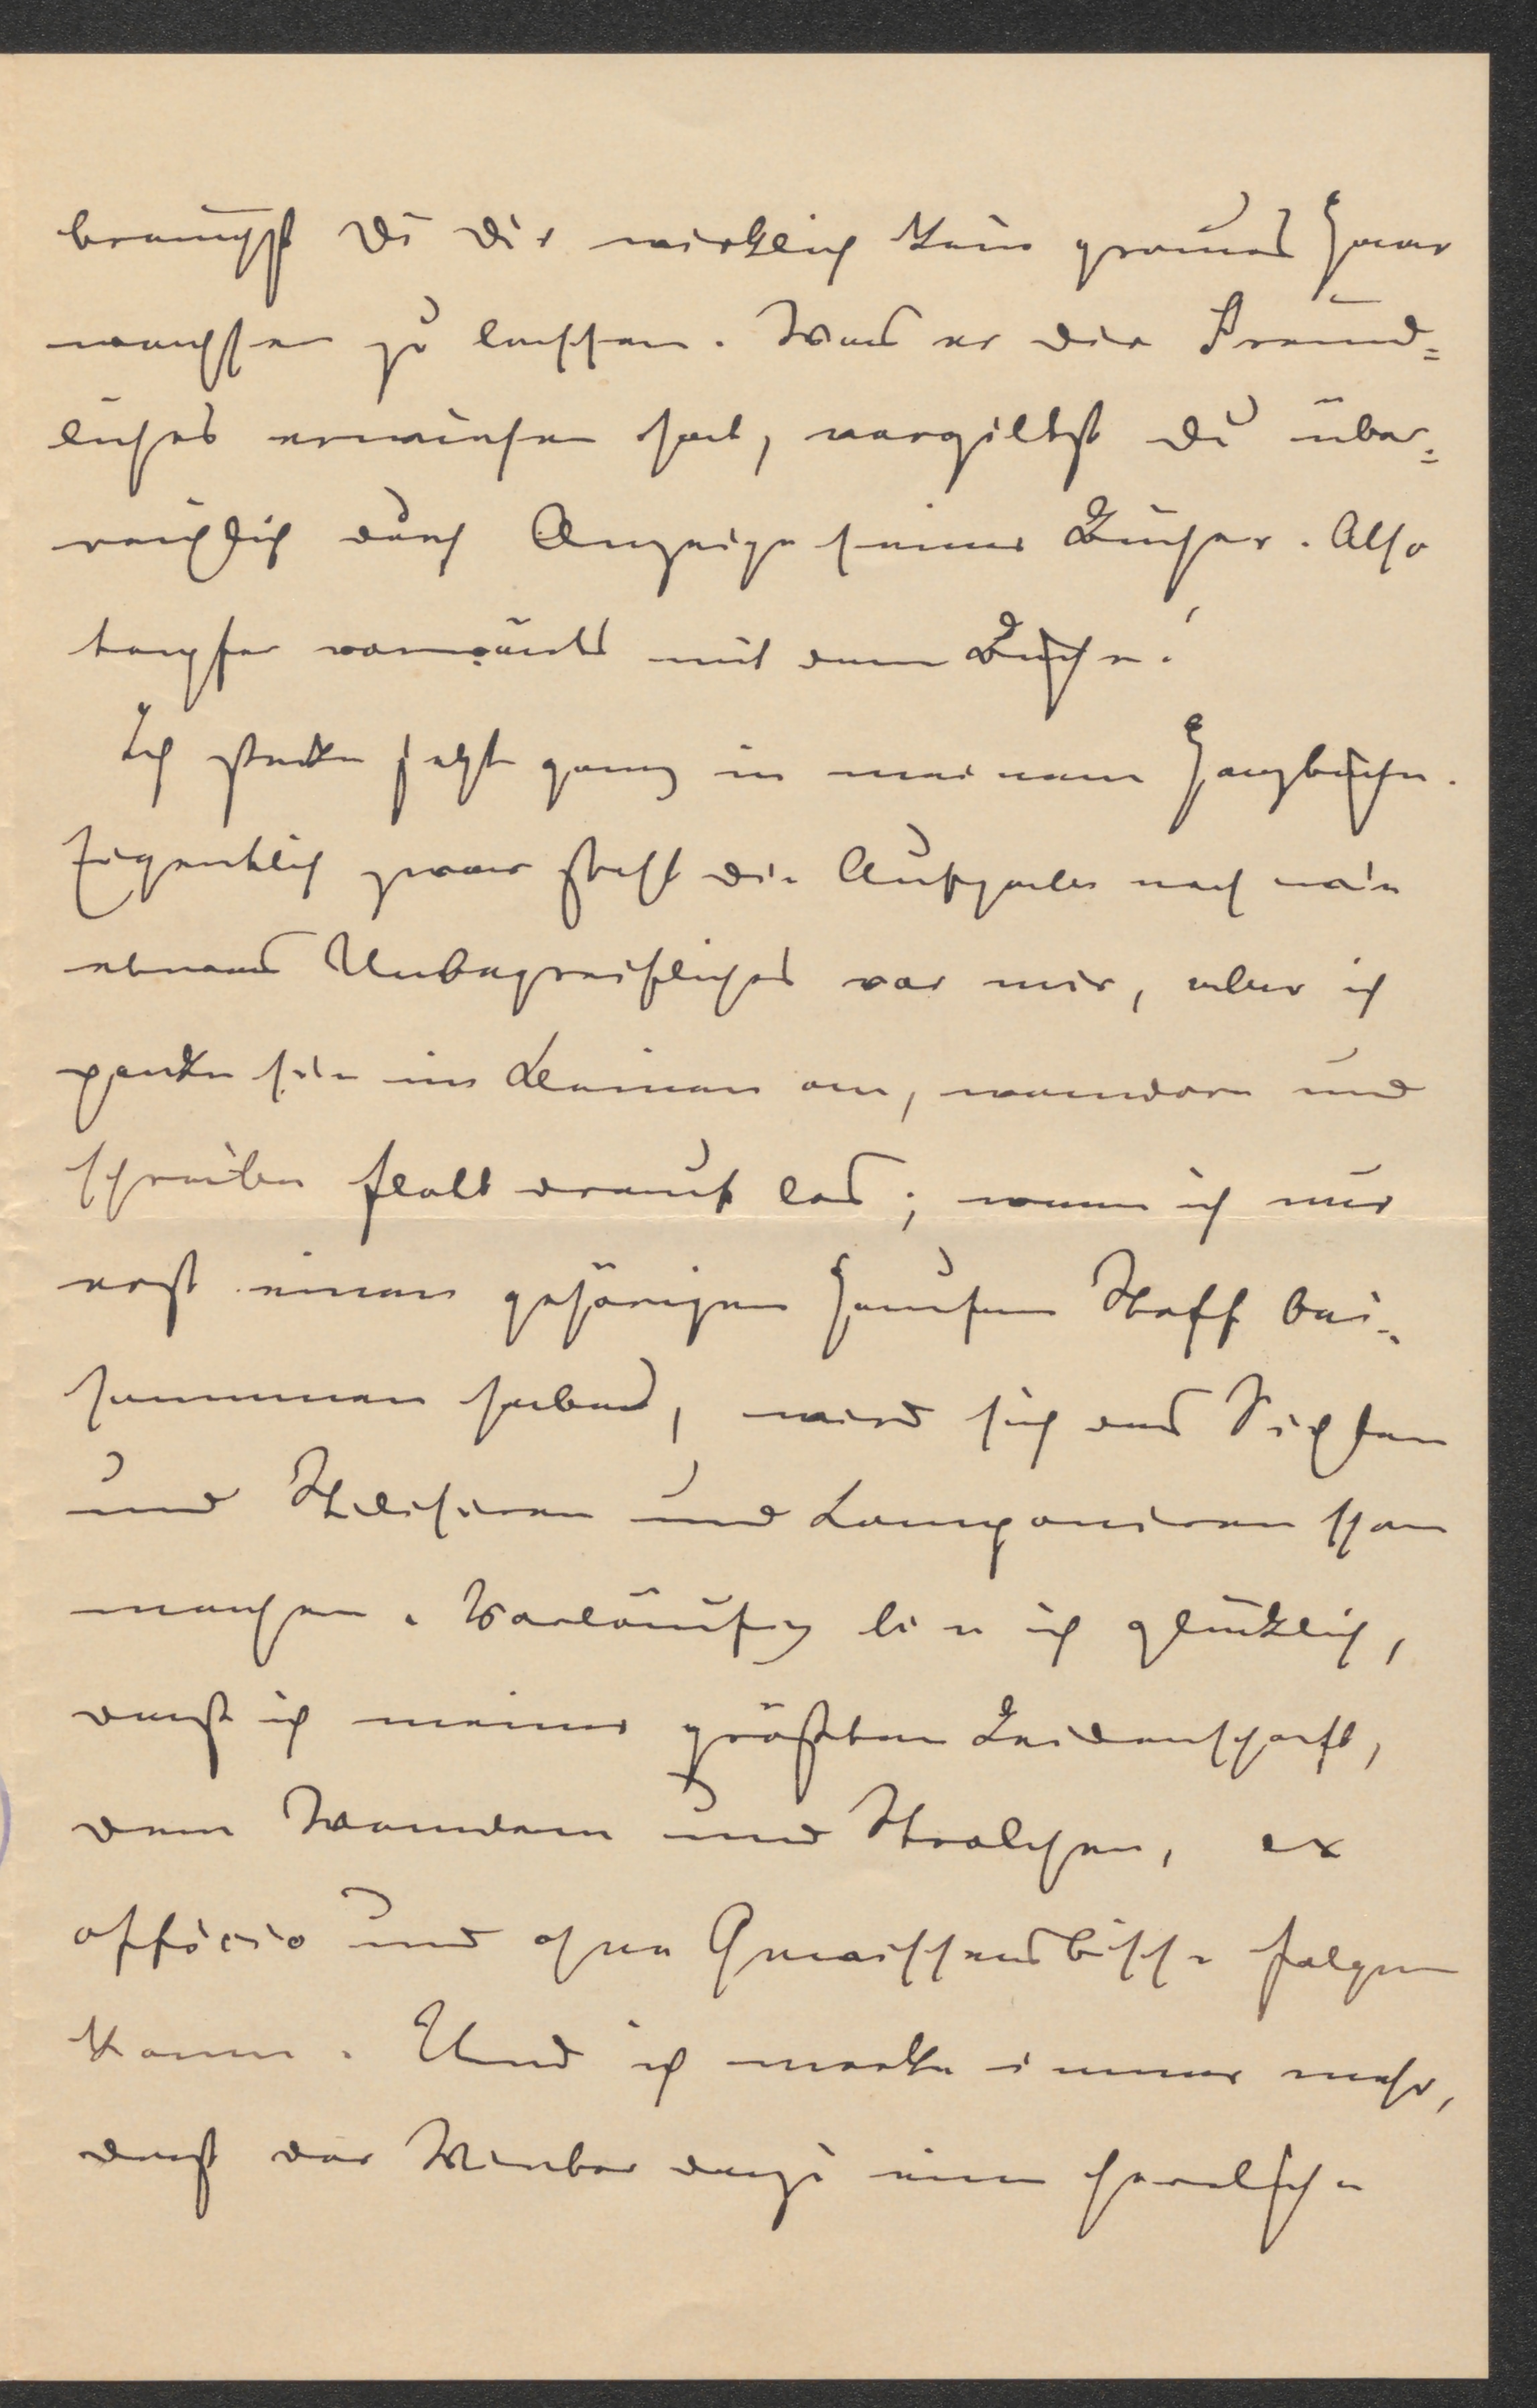 brauchst Du Dir wirklich kein graues Haar
wachsen zu lassen. Was er Dir Freund=
liches erwiesen hat, vergiltst Du über=
reichlich durch Anzeige seiner Bücher. Also
tapfer vorwärts mit dem Buche!
Ich stecke jetzt ganz in meinem Harzbuche.
Eigentlich zwar steht die Aufgabe noch wie
etwas Unbegreifliches vor mir, aber ich
packe sie im Kleinen an, wandere und
schreibe flott drauf los; wenn ich nur
erst einen gehörigen Haufen Stoff bei=
sammen habe, wird sich das Sichten
und Stilisieren und Komponieren schon
machen. Vorläufig bin ich glücklich,
daß ich meiner größten Leidenschaft,
dem Wandern und Strolchen, ex
officio und ohne Gewissensbisse folgen
kann. Und ich merke immer mehr,
daß der Winter dazu eine herrliche